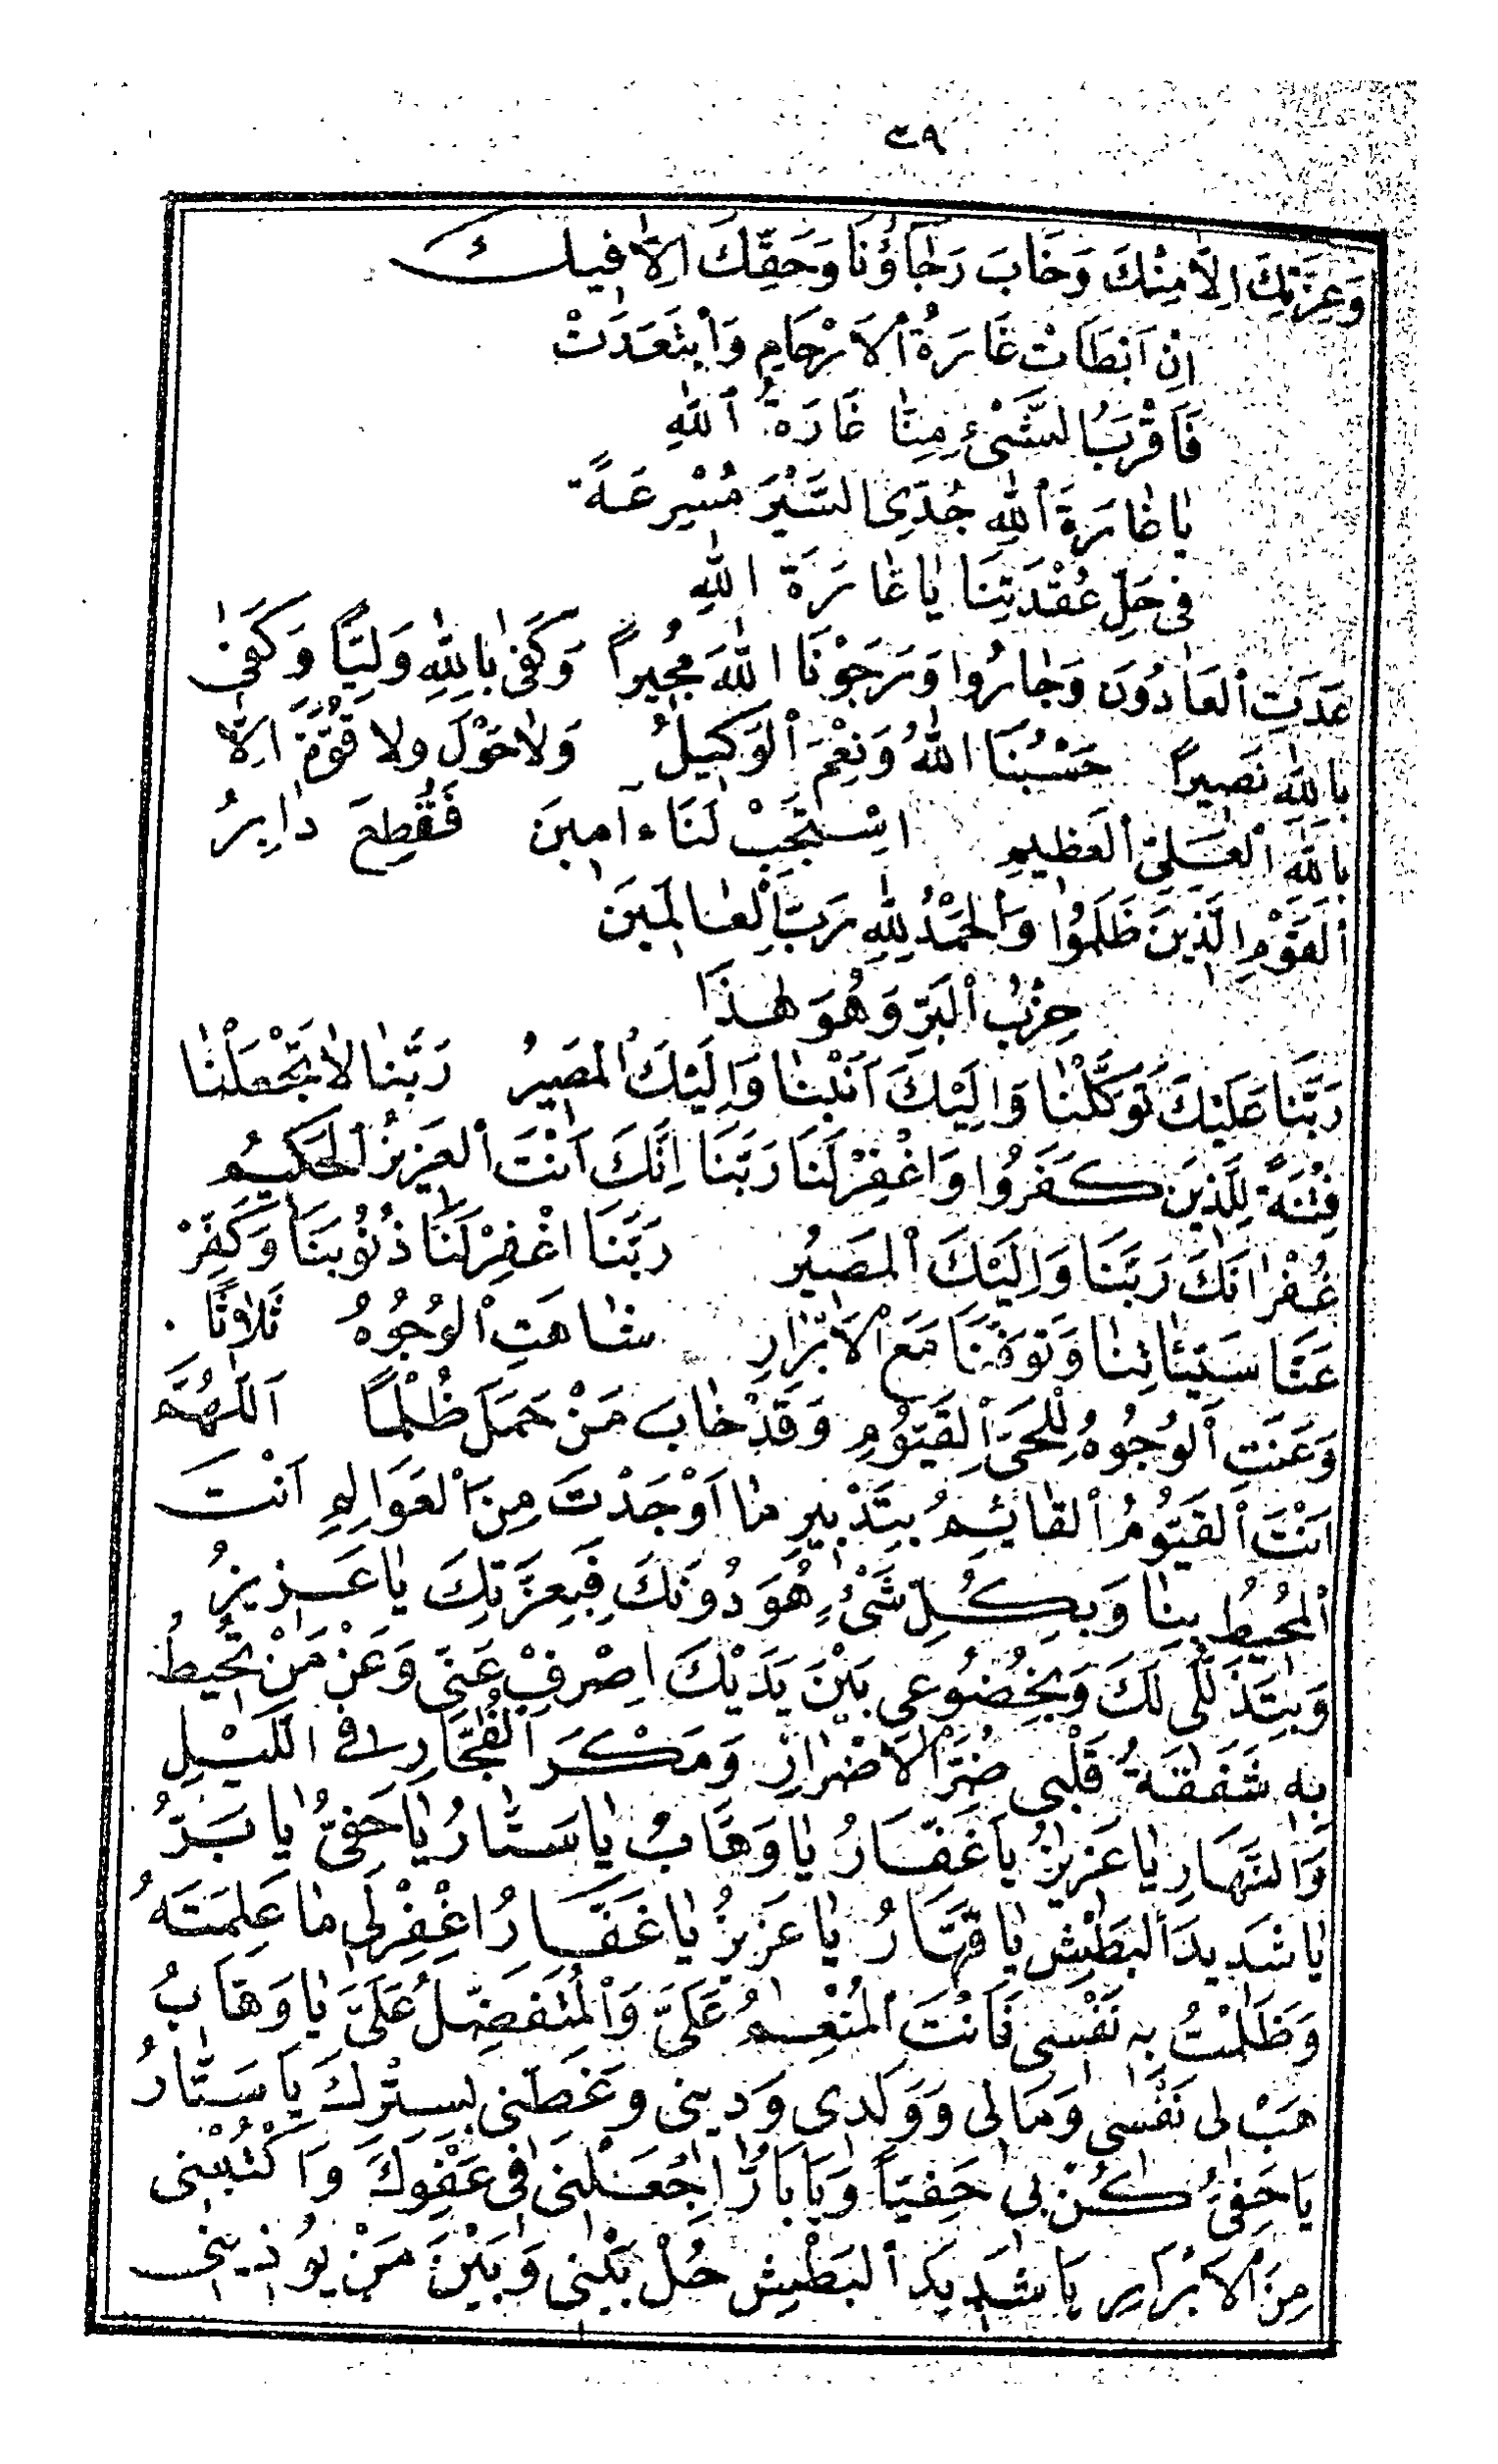 ٣٩
وَعِزَّتِكَ اِلاَّ مِنْكَ وَخَابَ رَجَاؤُنَا وَحَقِّكَ اِلاَّ فِيكَ
اِنْ اَبْطَاَتْ غَارَةُ ٱلْاَرْحَامِ وَٱبْتَعَدَتْ
فَاَقْرَبُ الشَّىْءِ مِنَّا غَارَةُ ٱللّٰهِ
يَا غَارَةَ ٱللّٰهِ جُدِّى السَّيْرَ مُسْرِعَةً
فِى حَلِّ عُقْدَتِنَا يَا غَارَةَ اللّٰهِ
عَدَتِ ٱلْعَادُونَ وَجَارُوا وَرَجَوْنَا اللّٰهَ مُجِيراً وَكَفٰى بِاللّٰهِ وَلِيًّا وَكَفٰى
بِاللّٰهِ نَصِيراً حَسْبُنَا اللّٰهُ وَنِعْمَ ٱلْوَكِيلُ وَلاَ حَوْلَ وَلاَ قُوَّةَ اِلاَّ
بِاللّٰهِ ٱلْعَلِىِّ ٱلْعَظِيمِ اِسْتَجِبْ لَنَا ءَامِينَ فَقُطِعَ دَابِرُ
ٱلْقَوْمِ الَّذِينَ ظَلَمُوا وَٱلْحَمْدُ لِلّٰهِ رَبِّ ٱلْعَالَمِينَ
حِزْبُ ٱلْبَرِّ وَهُوَ هٰذَا
رَبَّنَا عَلَيْكَ تَوَكَّلْنَا وَاِلَيْكَ اَنَبْنَا وَاِلَيْكَ ٱلْمَصِيرُ رَبَّنَا لاَ تَجْعَلْنَا
فِتْنَةً لِلَّذِينَ كَفَرُوا وَاغْفِرْ لَنَا رَبَّنَا اِنَّكَ اَنْتَ ٱلْعَزِيزُ ٱلْحَكِيمُ
غُفْرَانَكَ رَبَّنَا وَاِلَيْكَ ٱلْمَصِيرُ رَبَّنَا اغْفِرْ لَنَا ذُنُوبَنَا وَكَفِّرْ
عَنَّا سَيِّئَاتِنَا وَتَوَفَّنَا مَعَ ٱلْاَبْرَارِ شَاهَتِ ٱلْوُجُوهُ ثَلاَثًا
وَعَنَتِ ٱلْوُجُوهُ لِلْحَىِّ ٱلْقَيُّومِ وَقَدْ خَابَ مَنْ حَمَلَ ظُلْمًا اَللّٰهُمَّ
اَنْتَ ٱلْقَيُّومُ ٱلْقَائِمُ بِتَدْبِيرِ مَا اَوْجَدْتَ مِنَ ٱلْعَوَالِمِ اَنْتَ
ٱلْمُحِيطُ بِنَا وَبِكُلِّ شَىْءٍ هُوَ دُونَكَ فَبِعِزَّتِكَ يَا عَزِيزُ
وَبِتَذَلُّلِى لَكَ وَبِخُضُوعِى بَيْنَ يَدَيْكَ اِصْرِفْ عَنِّى وَعَنْ مَنْ تُحِيطُ
بِهِ شَفَقَةُ قَلْبِى ضُرَّ ٱلْاَضْرَارِ وَمَكْرَ ٱلْفُجَّارِ فِى اللَّيْلِ
وَالنَّهَارِ يَا عَزِيزُ يَا غَفَّارُ يَا وَهَّابُ يَا سَتَّارُ يَا حَفِىُّ يَا بَرُّ
يَا شَدِيدَ ٱلْبَطْشِ يَا قَهَّارُ يَا عَزِيزُ يَا غَفَّارُ اغْفِرْ لِى مَا عَلِمْتَهُ
وَظَلَمْتُ بِهِ نَفْسِى فَاَنْتَ ٱلْمُنْعِمُ عَلَىَّ وَٱلْمُتَفَضِّلُ عَلَىَّ يَا وَهَّابُ
هَبْ لِى نَفْسِى وَمَالِى وَوَلَدِى وَدِينِى وَغَطِّنِى بِسِتْرِكَ يَا سَتَّارُ
يَا حَفِىُّ كُنْ بِى حَفِيًّا وَيَا بَارُّ اِجْعَلْنِى فِى عَفْوِكَ وَاكْتُبْنِى
مِنَ ٱلْاَبْرَارِ يَا شَدِيدَ ٱلْبَطْشِ حُلْ بَيْنِى وَبَيْنَ مَنْ يُوذِينِى